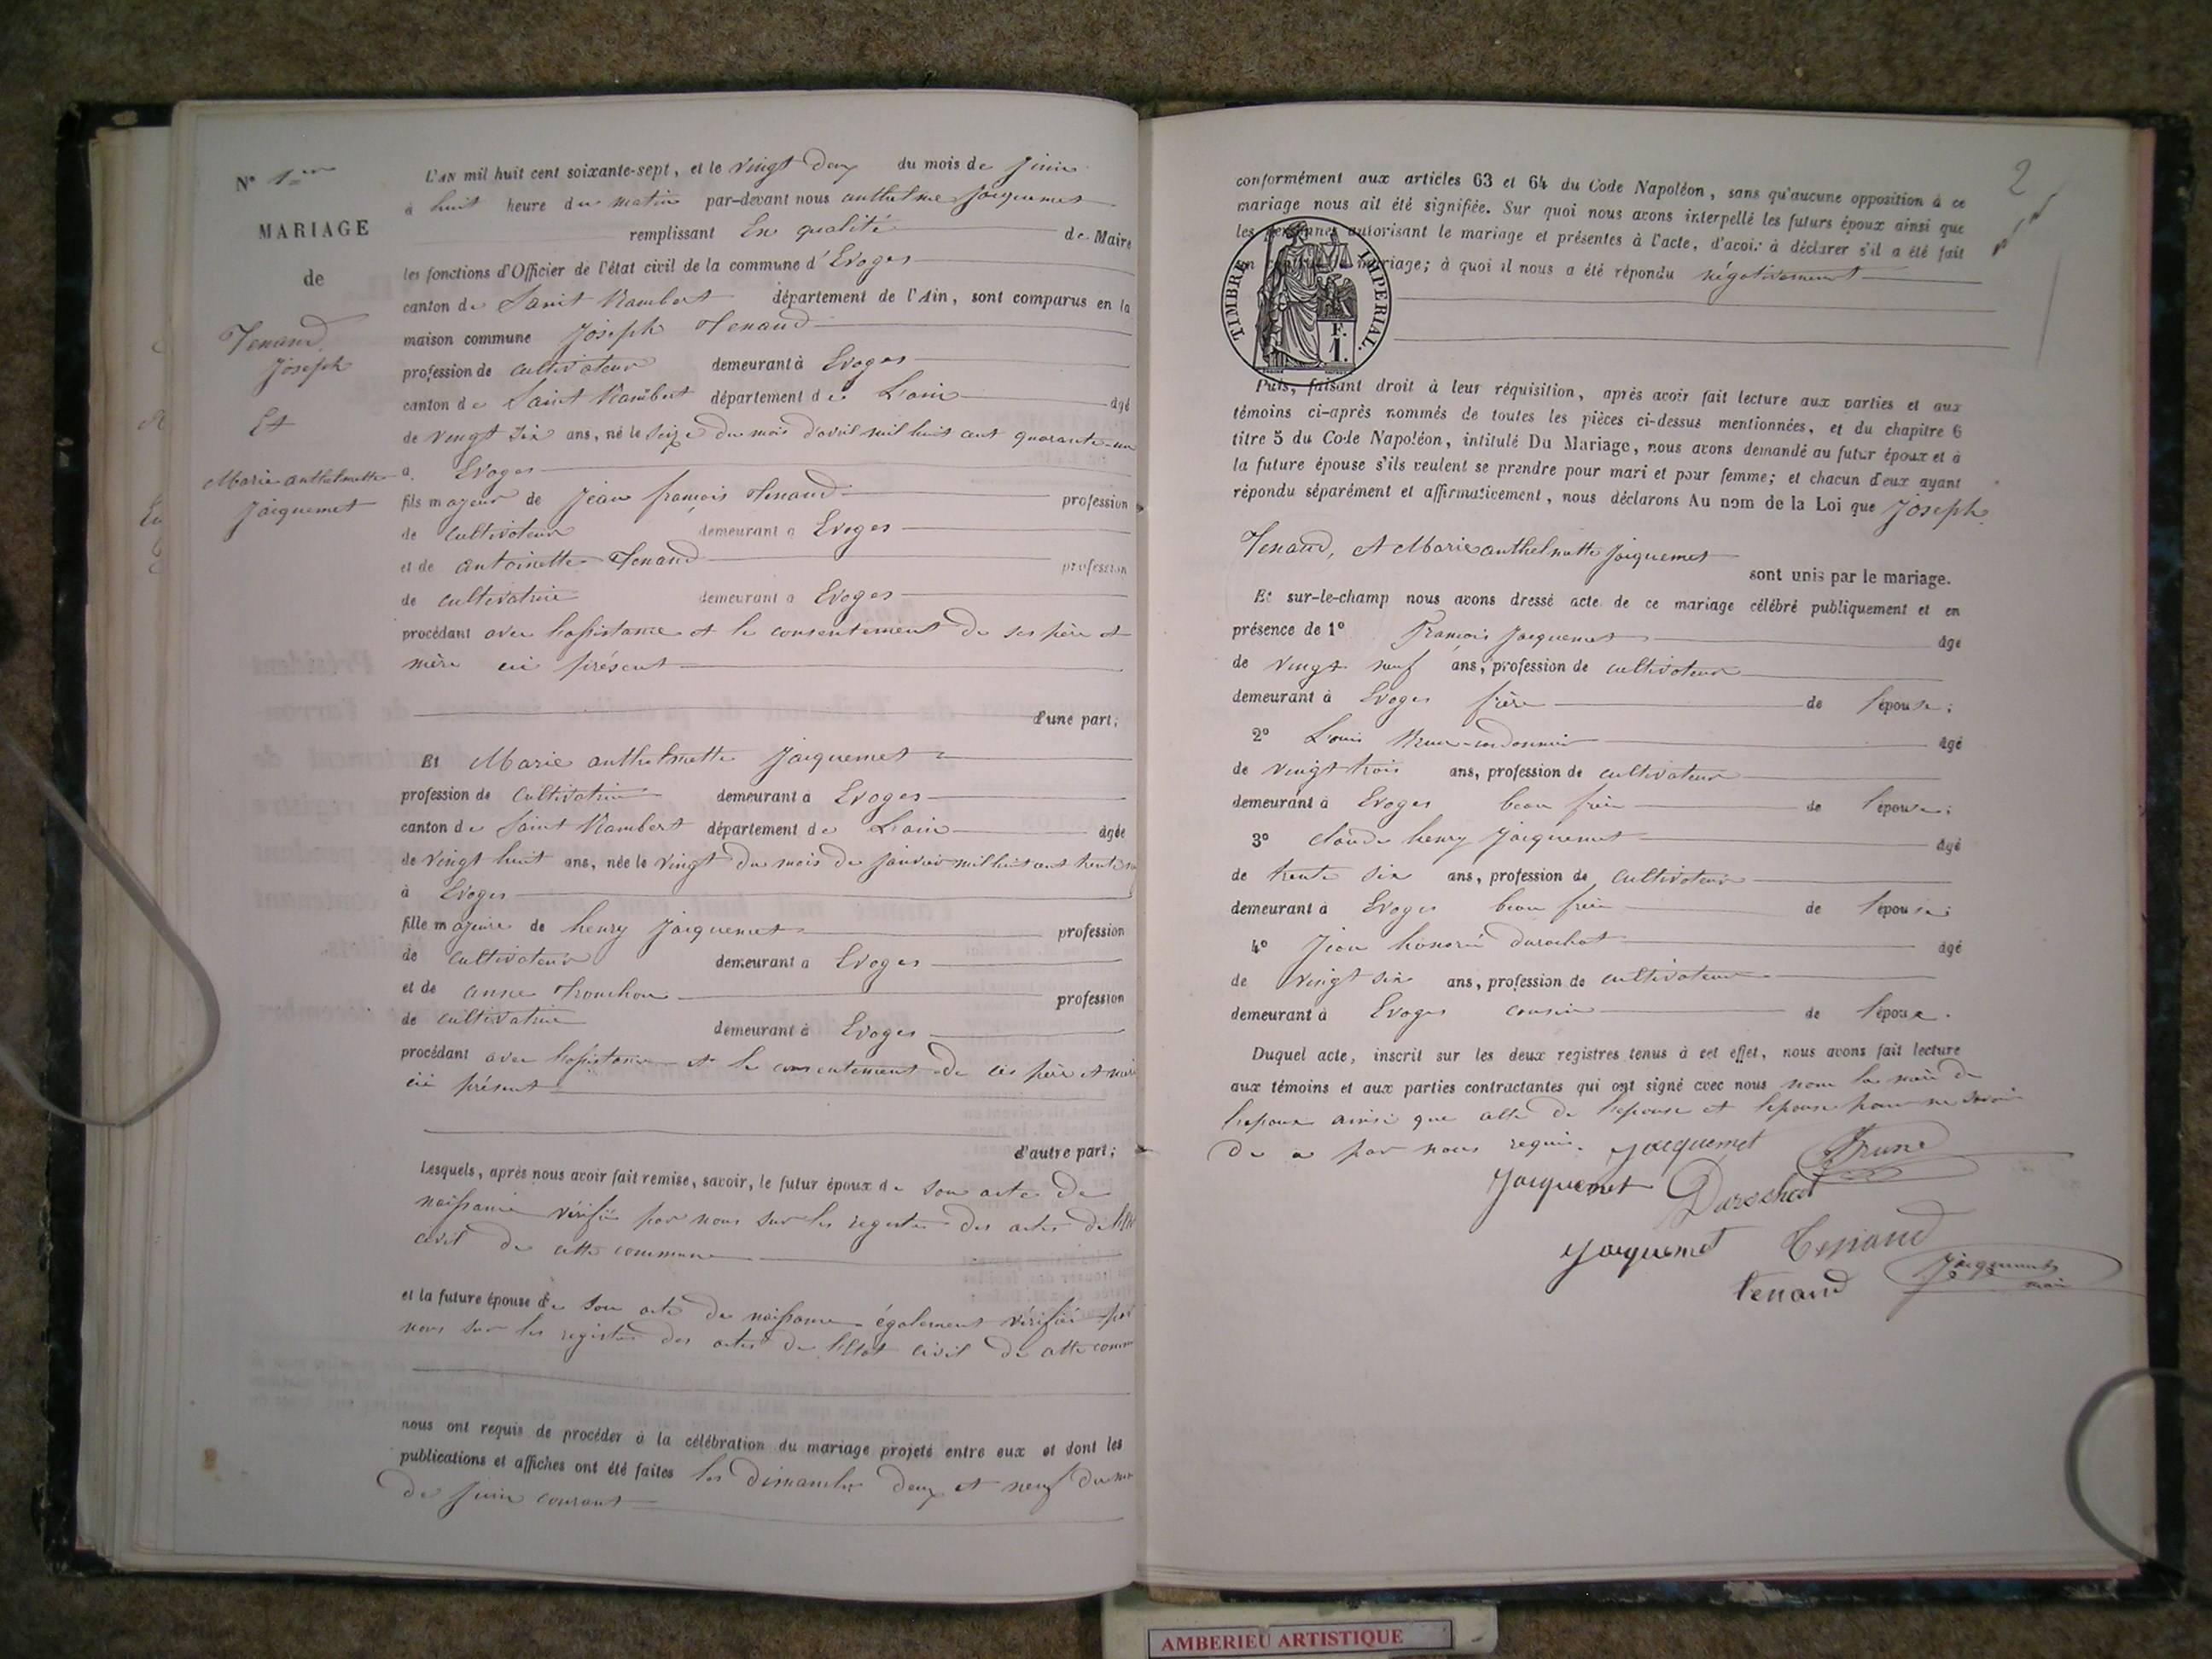 N° 1er
MARIAGE
de
Tenand
Joseph
Et
Marie anthelmette
Jacquemet
L'AN mil huit cent soixante-sept, et le vingt deux du mois de juin
à huit heure du matin par-devant nous anthelme Jacquemet
remplissant En qualité de Maire
les fonctions d'Officier de l'état civil de la commune d'Evoges
canton de Saint Rambert département de l'Ain, sont comparus en la
maison commune Joseph Tenand
profession de cultivateur demeurant à Evoges
canton de Saint Rambert département de L'ain âgé
de vingt six ans, né le seize du mois d'avril mil huit cent quarante-un
à Evoges
fils majeur de Jean françois Tenand profession
de cultivateur demeurant à Evoges
et de antoinette Tenand profession
de cultivatrice demeurant à Evoges
procédant avec l'assistance et le consentement de ses père et
mère ici présent
d'une part;
Et Marie anthelmette Jacquemet
profession de cultivatrice demeurant à Evoges
canton de Saint Rambert département de L'ain âgée
de vingt huit ans, née le vingt du mois de janvier mil huit cent trente
à Evoges
fille majeure de henry Jacquemet profession
de cultivateur demeurant à Evoges
et de anne Trouchon profession
de cultivatrice demeurant à Evoges
procédant avec l'assistance et le consentement de ces père et mère
ici présent
d'autre part;
Lesquels, après nous avoir fait remise, savoir, le futur époux de son acte de
naissance vérifié par nous sur les registre des actes de l'Etat
civil de cette commune
et la future épouse de son acte de naissance également vérifié par
nous sur les registres des actes de l'Etat civil de cette comm
nous ont requis de procéder à la célébration du mariage projeté entre eux et dont les
publications et affiches ont été faites les dimanches deux et neuf du
de juin courant
2
conformément aux articles 63 et 64 du Code Napoléon, sans qu'aucune opposition à ce
mariage nous ait été signifiée. Sur quoi nous avons interpellé les futurs époux ainsi que
les personnes autorisant le mariage et présentes à l'acte, d'avoir à déclarer s'il a été fait
un contrat de mariage; à quoi il nous a été répondu négativement
TIMBRE IMPERIAL.
F.
1.
Puis, faisant droit à leur réquisition, après avoir fait lecture aux parties et aux
témoins ci-après nommés de toutes les pièces ci-dessus mentionnées, et du chapitre 6
titre 5 du Code Napoléon, intitulé Du Mariage, nous avons demandé au futur époux et à
la future épouse s'ils veulent se prendre pour mari et pour femme; et chacun d'eux ayant
répondu séparément et affirmativement, nous déclarons Au nom de la Loi que Joseph
Tenand, et Marie anthelmette Jacquemet
sont unis par le mariage.
Et sur-le-champ nous avons dressé acte de ce mariage célébré publiquement et en
présence de 1° François Jacquemet âgé
de vingt neuf ans, profession de cultivateur
demeurant à Evoges frère de l'épouse;
2° Louis âgé
de vingt trois ans, profession de cultivateur
demeurant à Evoges beau frère de l'épouse;
3° claude henry Jacquemet âgé
de trente six ans, profession de cultivateur
demeurant à Evoges beau frère de l'épouse;
4° Jean honoré Darochat âgé
de vingt six ans, profession de cultivateur
demeurant à Evoges cousin de l'épouse.
Duquel acte, inscrit sur les deux registres tenus à cet effet, nous avons fait lecture
aux témoins et aux parties contractantes qui ont signé avec nous non la mère de
l'epoux ainsi que celle de l'epouse et l'epouse pour ne savoir
de ce par nous requis. Jacquemet Brune
Jacquemet Darochat
Jacquemet Tenand
Tenand Jacquemet
maire
AMBERIEU ARTISTIQUE